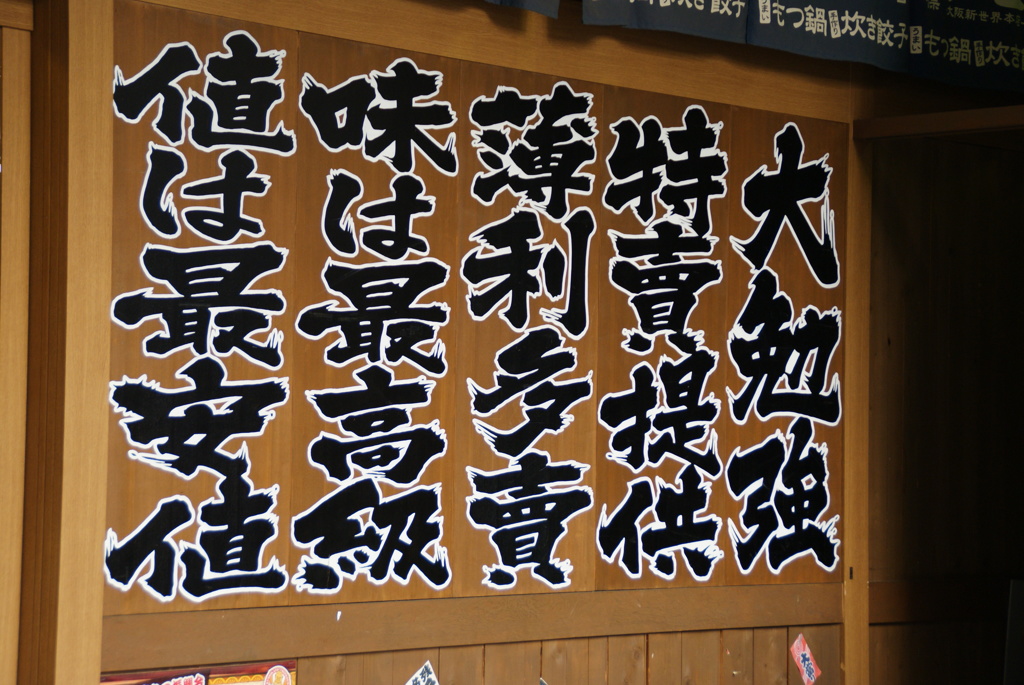 大勉強
特賣提供
薄利多賣
味は最高級
値は最安値
もつ鍋 炊き餃子 もつ鍋 炊き
大阪新世界